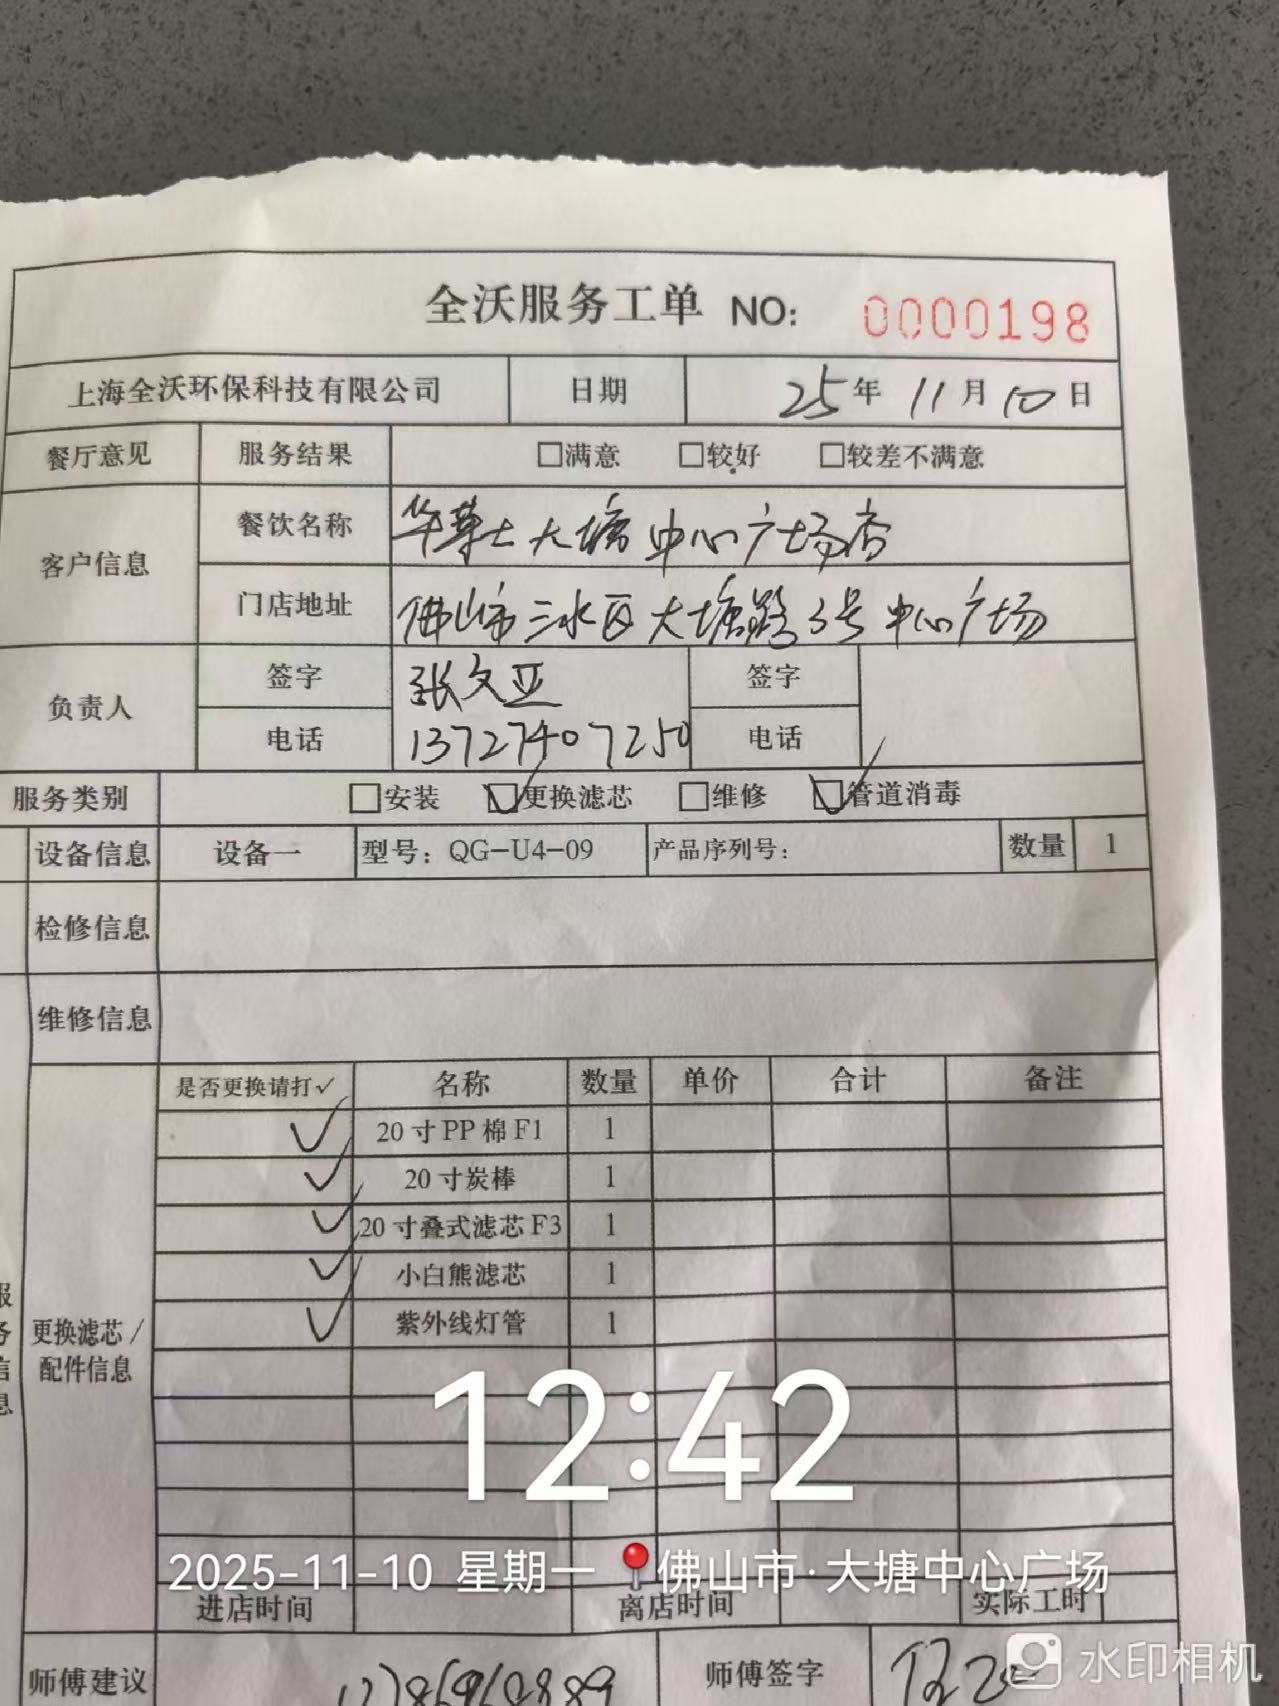 全沃服务工单 NO: 0000198
上海全沃环保科技有限公司 日期 25年 11月 10日
餐厅意见 服务结果 □满意 □较好 □较差不满意
客户信息 餐饮名称 华莱士大塘中心广场店
门店地址 佛山市三水区大塘路3号中心广场
负责人 签字 张文亚 签字
电话 13727407250 电话
服务类别 □安装 ☑更换滤芯 □维修 ☑管道消毒
设备信息 设备一 型号：QG-U4-09 产品序列号： 数量 1
检修信息
维修信息
是否更换请打✓ 名称 数量 单价 合计 备注
✓ 20寸PP棉F1 1
✓ 20寸炭棒 1
✓ 20寸叠式滤芯F3 1
✓ 小白熊滤芯 1
服务信息 更换滤芯/配件信息 ✓ 紫外线灯管 1
12:42
2025-11-10 星期一 佛山市·大塘中心广场
进店时间 离店时间 实际工时
师傅建议 师傅签字
水印相机